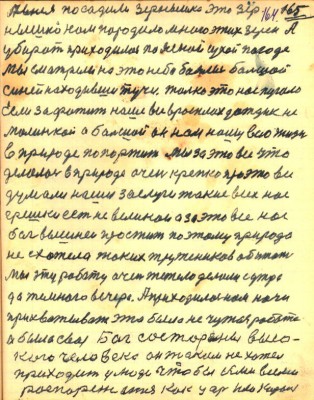 164. 165
меня посадили зернышко это зер
нышко нам породило много этих зерен А
убират приходилос по ясной сухой погоде
Мы сматрели на это небо
синей находивши тучи. толко это нас пугало
Если захватит наше во врасплох дождик не
малинкой а балшой он нам нашу всю жизн
в природе попортит Мы за это все что
делали в природе очен крепко про это все
думали наши заслуги такие всех нас
грешки ест не великие а за это все нас
бог вышней простит поэтому природа
не схотела таких тружеников обижат
Мы эту работу очен тежело делали с утра
да темного вечера. А приходилос нам ночи
прихватыват это была не чужая работа
а была своя Бог со стораны высо-
кого человека он таким не хотел
приходит к людям чтобы ими всеми
роспоряж атся как удар